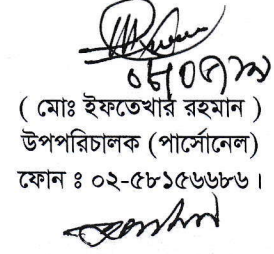 ( মোঃ ইফতেখার রহমান )
উপপরিচালক (পার্সোনেল)
ফোন ঃ ০২-৫৮১৫৬৬৮৬ ।